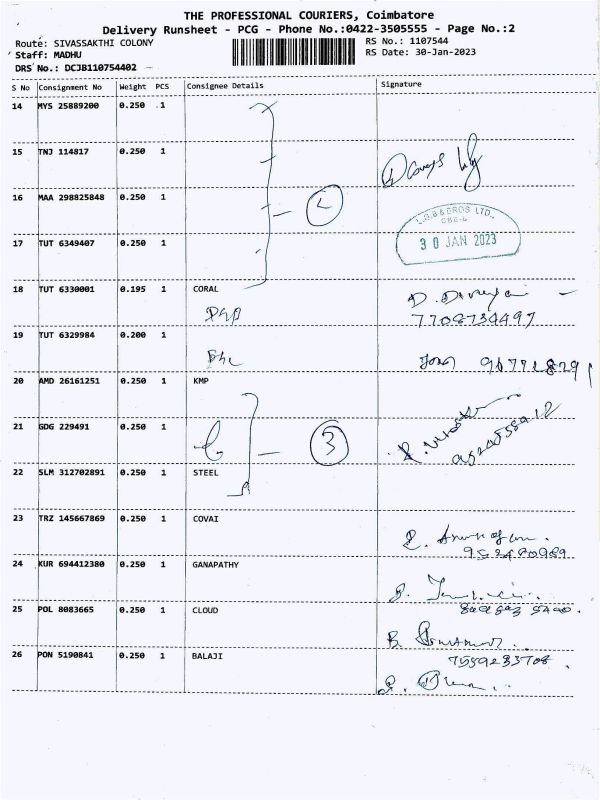 THE PROFESSIONAL COURIERS, Coimbatore
Delivery Runsheet - PCG - Phone No.:0422-3505555 - Page No.:2
Route: SIVASSAKTHI COLONY RS No.: 1107544
Staff: MADHU RS Date: 30-Jan-2023
DRS No.: DCJB110754402
S No Consignment No Weight PCS Consignee Details Signature
14 MYS 25889200 0.250 1
15 TNJ 114817 0.250 1
16 MAA 298825848 0.250 1
L.G.B & BROS LTD.,
CBE-6
30 JAN 2023
17 TUT 6349407 0.250 1
18 TUT 6330001 0.195 1 CORAL
7708734497
19 TUT 6329984 0.200 1
20 AMD 26161251 0.250 1 KMP
21 GDG 229491 0.250 1
3
22 SLM 312702891 0.250 1 STEEL
23 TRZ 145667869 0.250 1 COVAI
24 KUR 694412380 0.250 1 GANAPATHY
25 POL 8083665 0.250 1 CLOUD
26 PON 5190841 0.250 1 BALAJI
7559233708